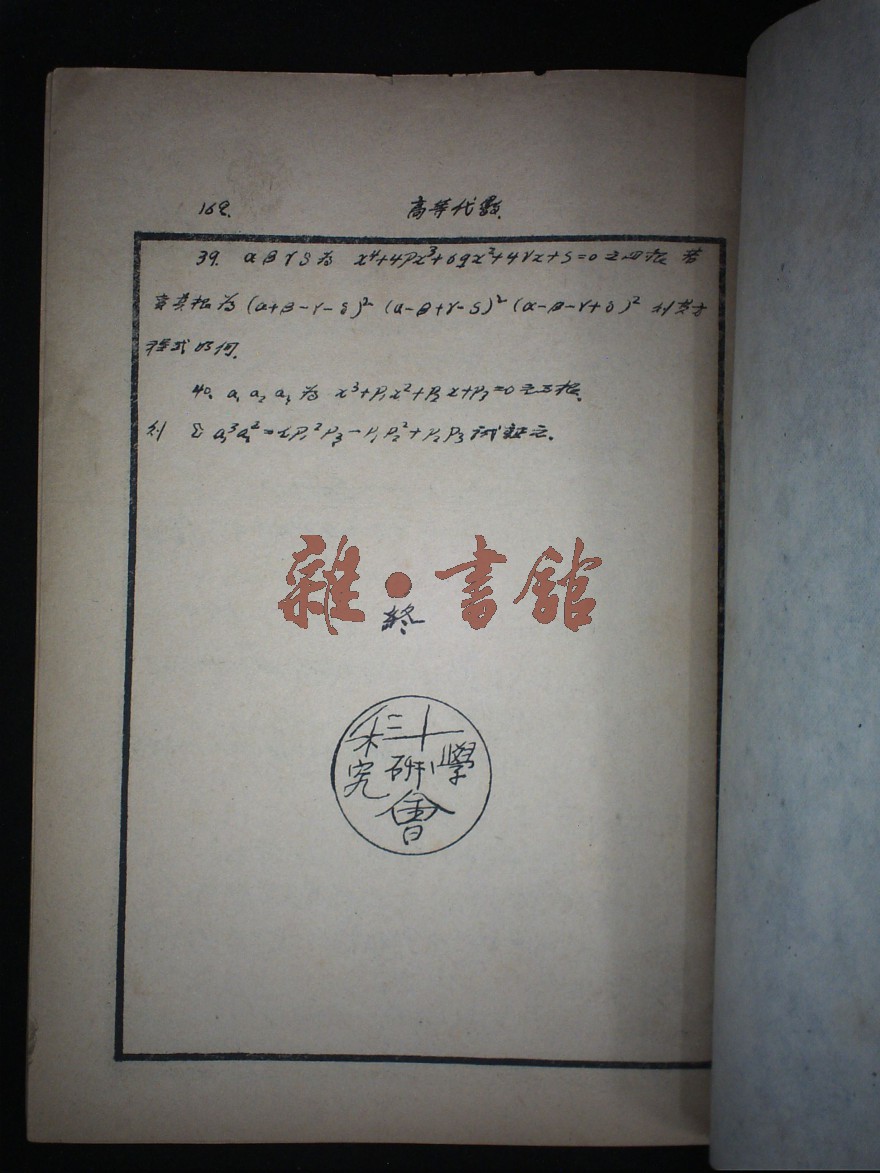 162. 高等代數
39. α β γ δ 為 x⁴+4px³+6qx²+4γx+s=0 之四根 若
其根為 (α+β-γ-δ)² (α-β+γ-δ)² (α-β-γ+δ)² 則其方
程式如何.
40. a₁ a₂ a₃ 為 x³+p₁x²+p₂x+p₃=0 之三根.
則 Σ a₁³a₂²=2p₁²p₃-p₁p₂²+p₂p₃ 試証之.
雜·書館
終
三十
學 研究
會